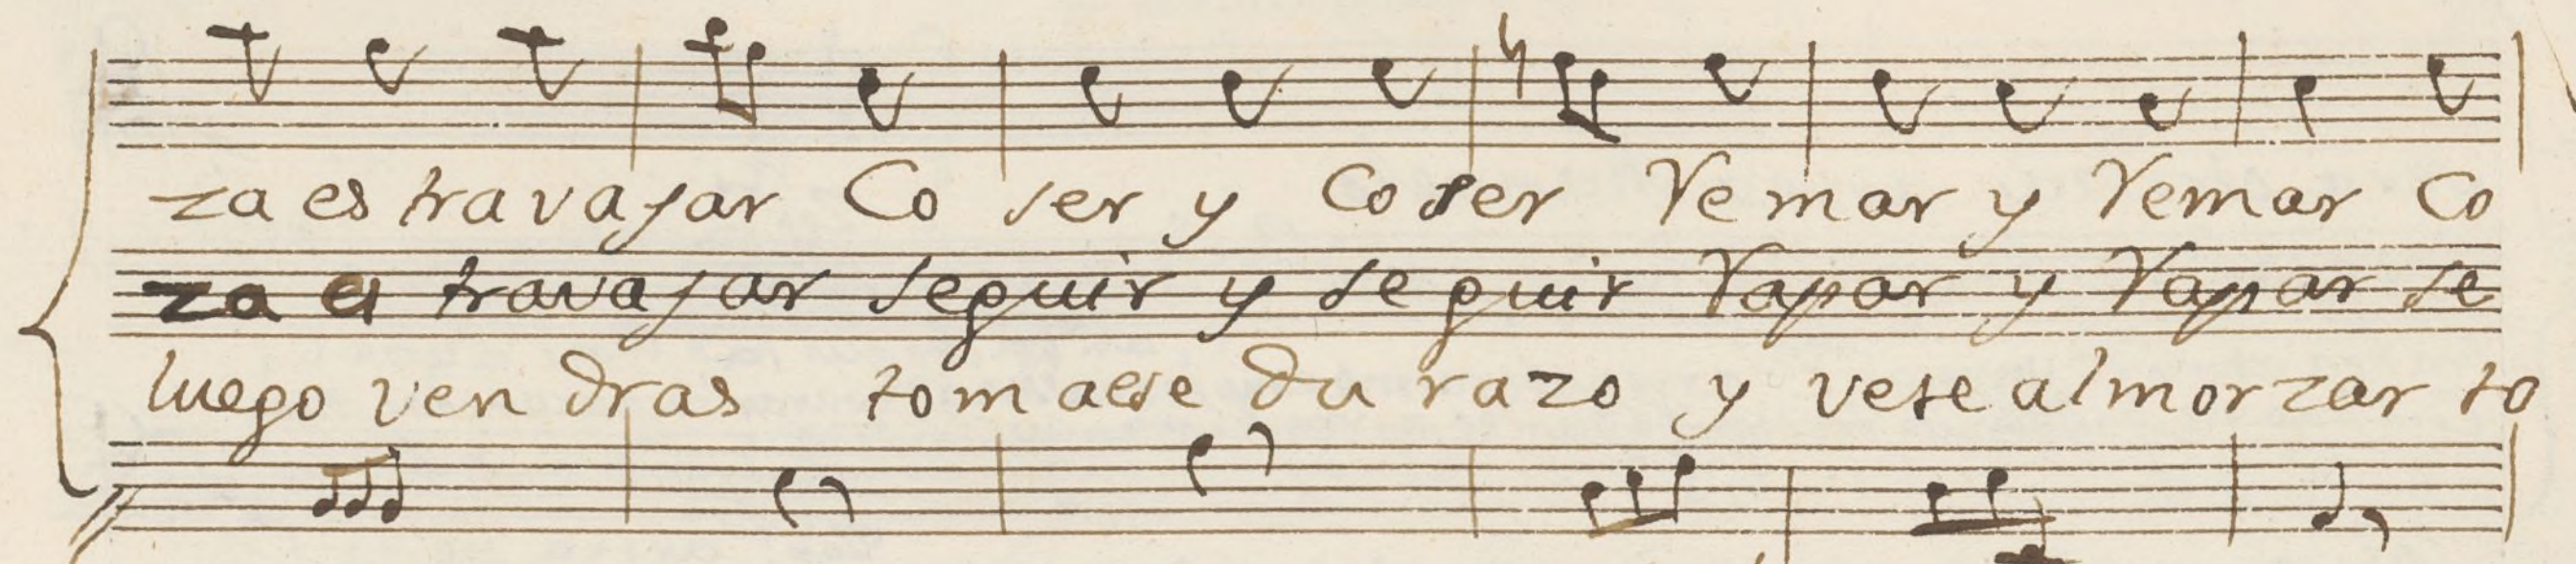 za es travajar Co ser y Coser Remar y Remar Co
za es travajar seguir y seguir Rapar y Rapar se
luego vendras toma ese durazo y vete almorzar to